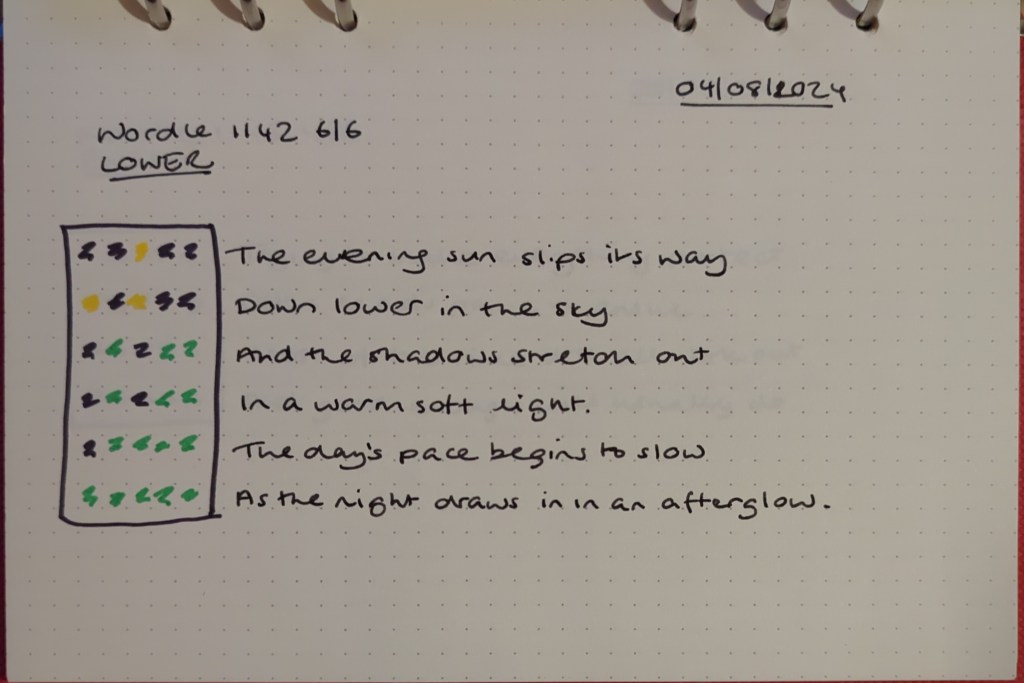 04/08/2024
Wordle 1142 6/6
LOWER
The evening sun slips its way
Down lower in the sky
And the shadows stretch out
In a warm soft light.
The day's pace begins to slow
As the night draws in in an afterglow.